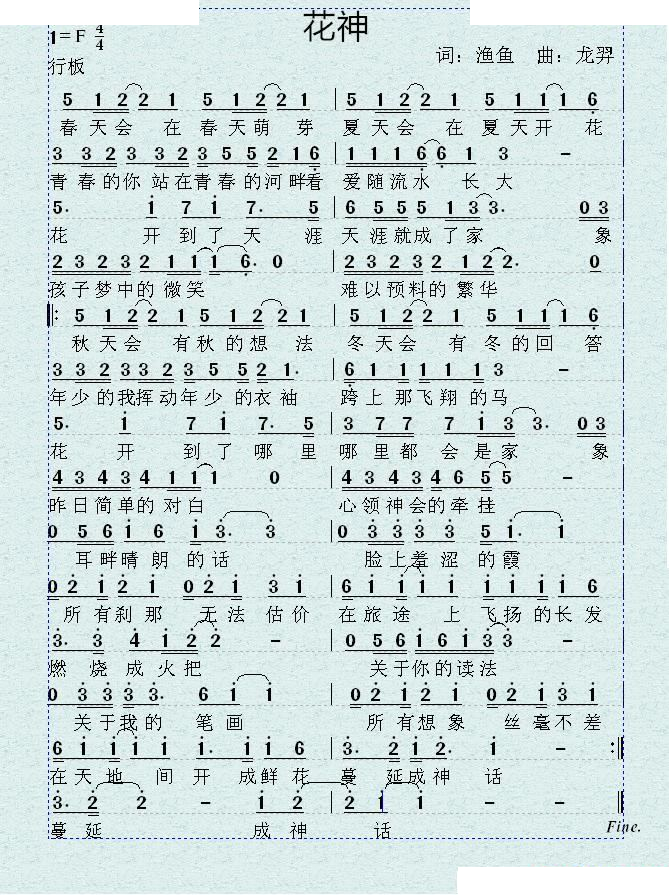 花神
1=F 4/4
词：渔鱼 曲：龙羿
行板
5 1 2 2 1 5 1 2 2 1 | 5 1 2 2 1 5 1 1 1 6
春天会 在 春天萌 芽 夏天会 在 夏天开 花
3 3 2 3 3 3 2 3 5 5 2 1 6 | 1 1 1 6 6 1 3 –
青春的你 站在青春的河畔看 爱随流水 长 大
5. i 7 i 7. 5 | 6 5 5 5 1 3 3. 0 3
花 开 到 了 天 涯 天涯就成了家 象
2 3 2 3 2 1 1 1 6. 0 | 2 3 2 3 2 1 2 2. 0
孩子梦中的 微笑 难以预料的 繁华
5 1 2 2 1 5 1 2 2 1 | 5 1 2 2 1 5 1 1 1 6
秋天会 有秋的想 法 冬天会 有 冬的回 答
3 3 2 3 3 3 2 3 5 5 2 1. | 6 1 1 1 1 1 1 3 –
年少的我挥动年少的衣袖 跨上那飞翔的马
5. i 7 i 7. 5 | 3 7 7 7 i 3 3. 0 3
花 开 到 了 哪 里 哪里都 会是家 象
4 3 4 3 4 1 1 1 0 | 4 3 4 3 4 6 5 5 –
昨日简单的 对白 心领神会的牵挂
0 5 6 i 6 i 3. 3 | 0 3 3 3 3 5 i. i
耳畔晴 朗 的话 脸上羞 涩 的霞
0 2 i 2 i 0 2 i 3 i | 6 i i i i i i i i 6
所有刹 那 无法 估价 在旅途 上 飞扬的长发
3. 3 4 i 2 2 – | 0 5 6 i 6 i 3 3 –
燃 烧 成火把 关于你的读法
0 3 3 3 3. 6 i i | 0 2 i 2 i 0 2 i 3 i
关于我的 笔画 所有想 象 丝毫不差
6 i i i i i. i i i 6 | 3. 2 i 2. i –
在天地 间 开 成鲜花 蔓 延成神 话
3. 2 2 – i 2 | 2 i i –
蔓 延 成 神 话
Fine.